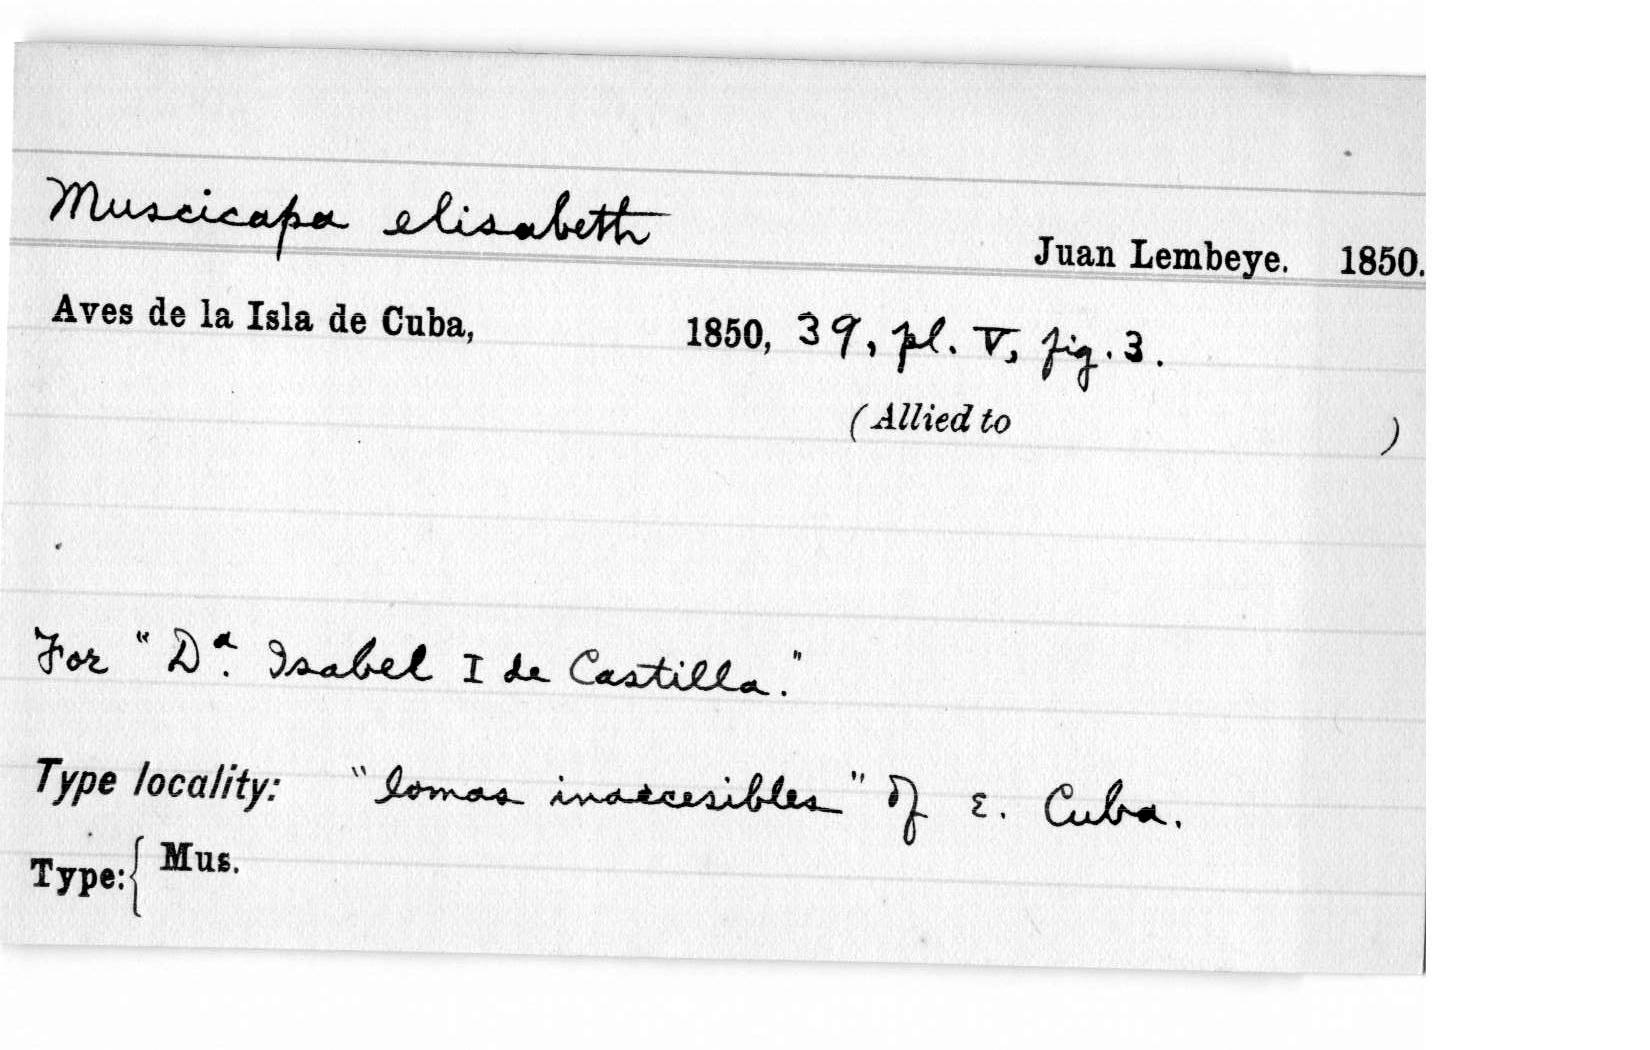 Muscicapa elisabeth
Juan Lembeye. 1850.
Aves de la Isla de Cuba, 1850, 39, pl. V, fig. 3.
(Allied to )
For "Dª. Isabel I de Castilla."
Type locality: "lomas inaccesibles" of E. Cuba.
Type: { Mus.